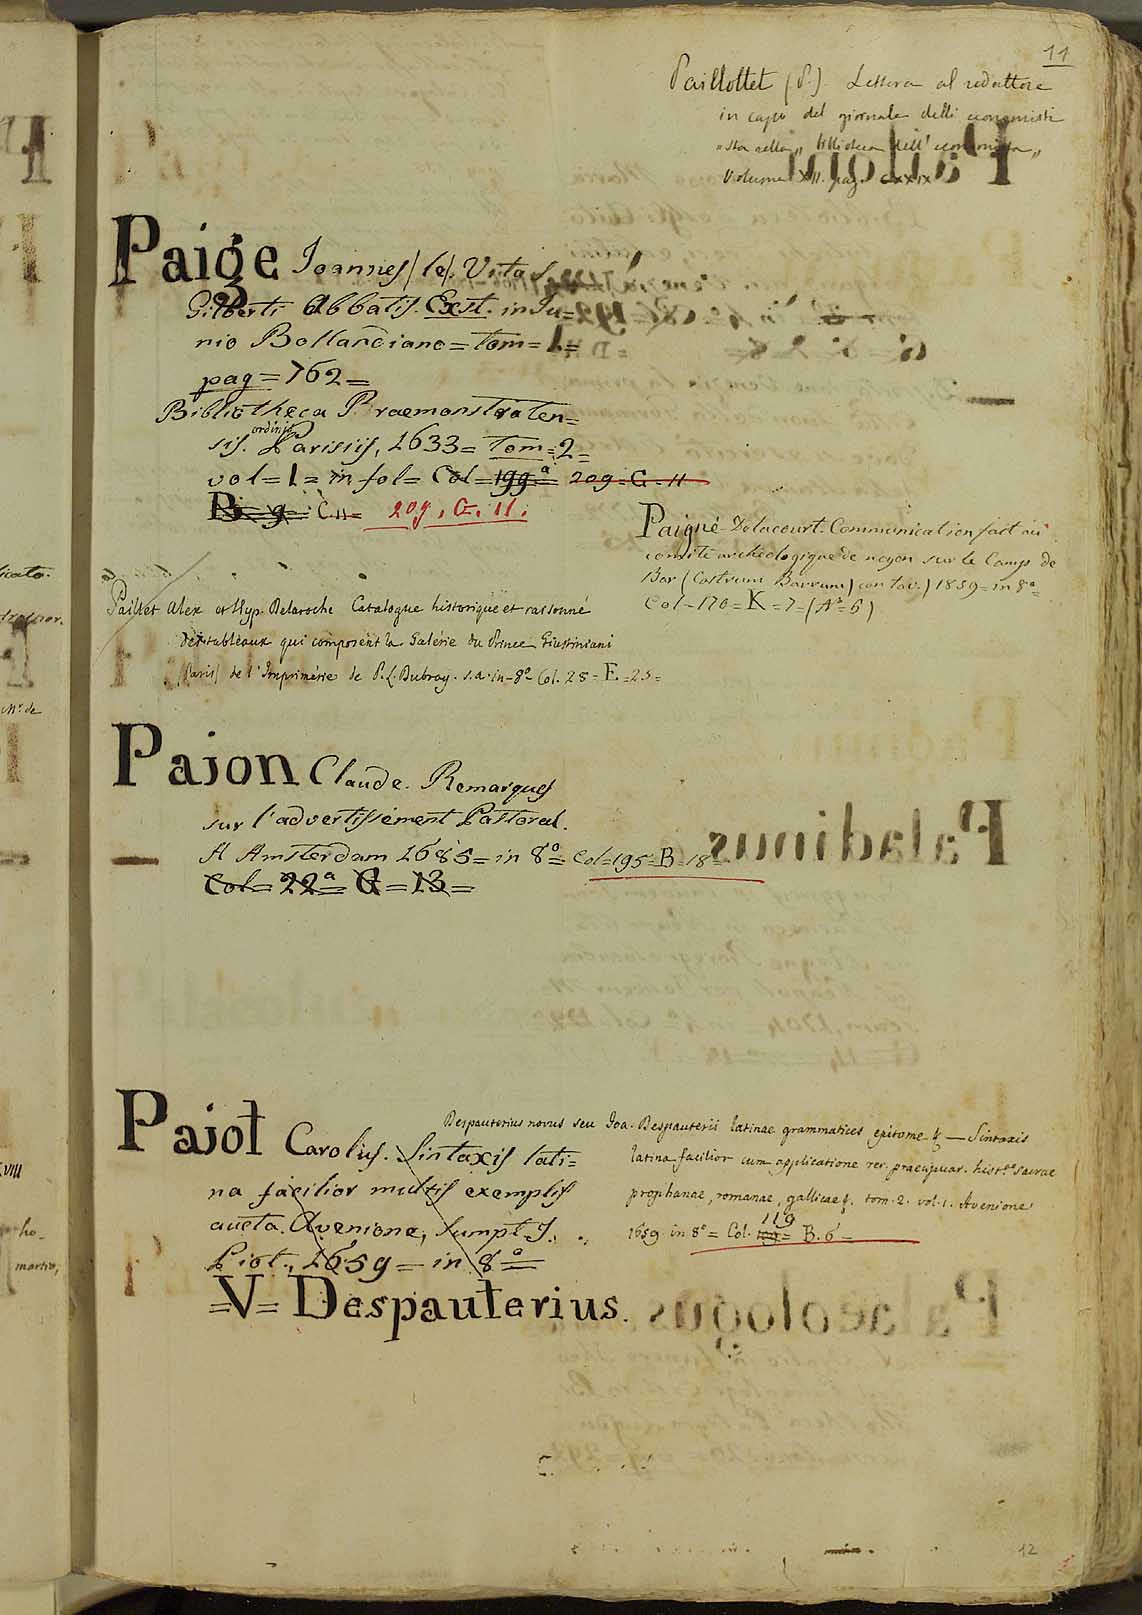 11
Paillottet (P.). Lettera al redattore
in capo del giornale delli economisti
sta nella „ biblioteca dell' economista „
Volume XII. pag. CXXIX
Paige Joannes (le). Vita S.
Gilberti Abbatis. Exst. in Ju=
nio Bollandiano = Tom = 1 =
pag = 762 =
Bibliotheca Praemonstraten=
sis. ordinis. Parisiis, 1633 = Tom = 2 =
vol = 1 = in fol = Col = 199ª = 209 = G. 11
B = 9 = C. 11 = 209. G. 11.
Paigné-Delacourt. Communication fait au
comité archéologique de noyon sur le Camp de
Bar (Castrum Barrum) con tav.) 1859 = in 8º =
Col = 170 = K = 7 = (Nº = 6)
Paillet Alex et Hyp. Delaroche Catalogue historique et raisonné
des tableaux qui composent la Galérie du Prince Giustiniani
(Paris) de l'Imprimérie de P. L. Dubray. s. a. in-8º Col. 28 = E = 25 =
Pajon Claude. Remarques
sur l'advertissement Pastoral.
A Amsterdam 1685 = in 8º = Col = 195 = B = 18 =
Col = 22ª = G = 13 =
Despauterius novus seu Joa. Despauterii latinae grammatices epitome &. — Sintaxis
latina facilior cum applicatione rer. praecipuar. hist.ae sacrae
prophanae, romanae, gallicae &. tom. 2. vol. 1. Avenione
1659. in 8º = Col. 199 = 119 B. 6 =
Pajot Carolus. Sintaxis lati=
na facilior multis exemplis
aucta. Avenione, sumpt. J.
Piot., 1659 = in 8º =
= V = Despauterius.
12